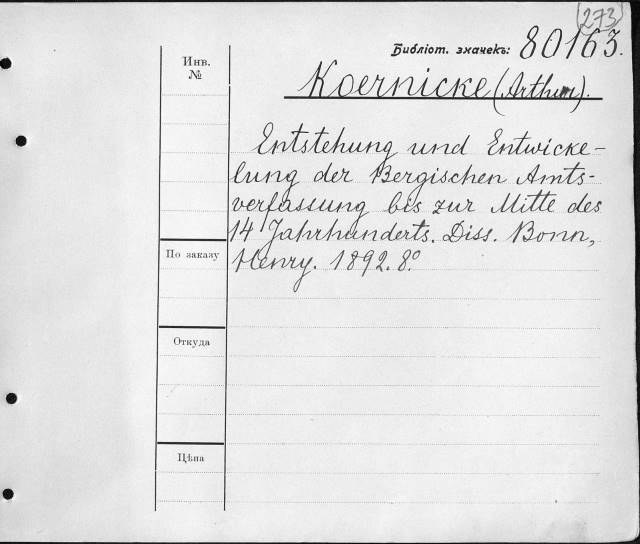 (273)
Библіот. значекъ: 80163.
Инв.
№
Koernicke (Arthur).
Entstehung und Entwicke-
lung der Bergischen Amts-
verfassung bis zur Mitte des
14 Jahrhunderts. Diss. Bonn,
Henry. 1892. 8.°
По заказу
Откуда
Цѣна